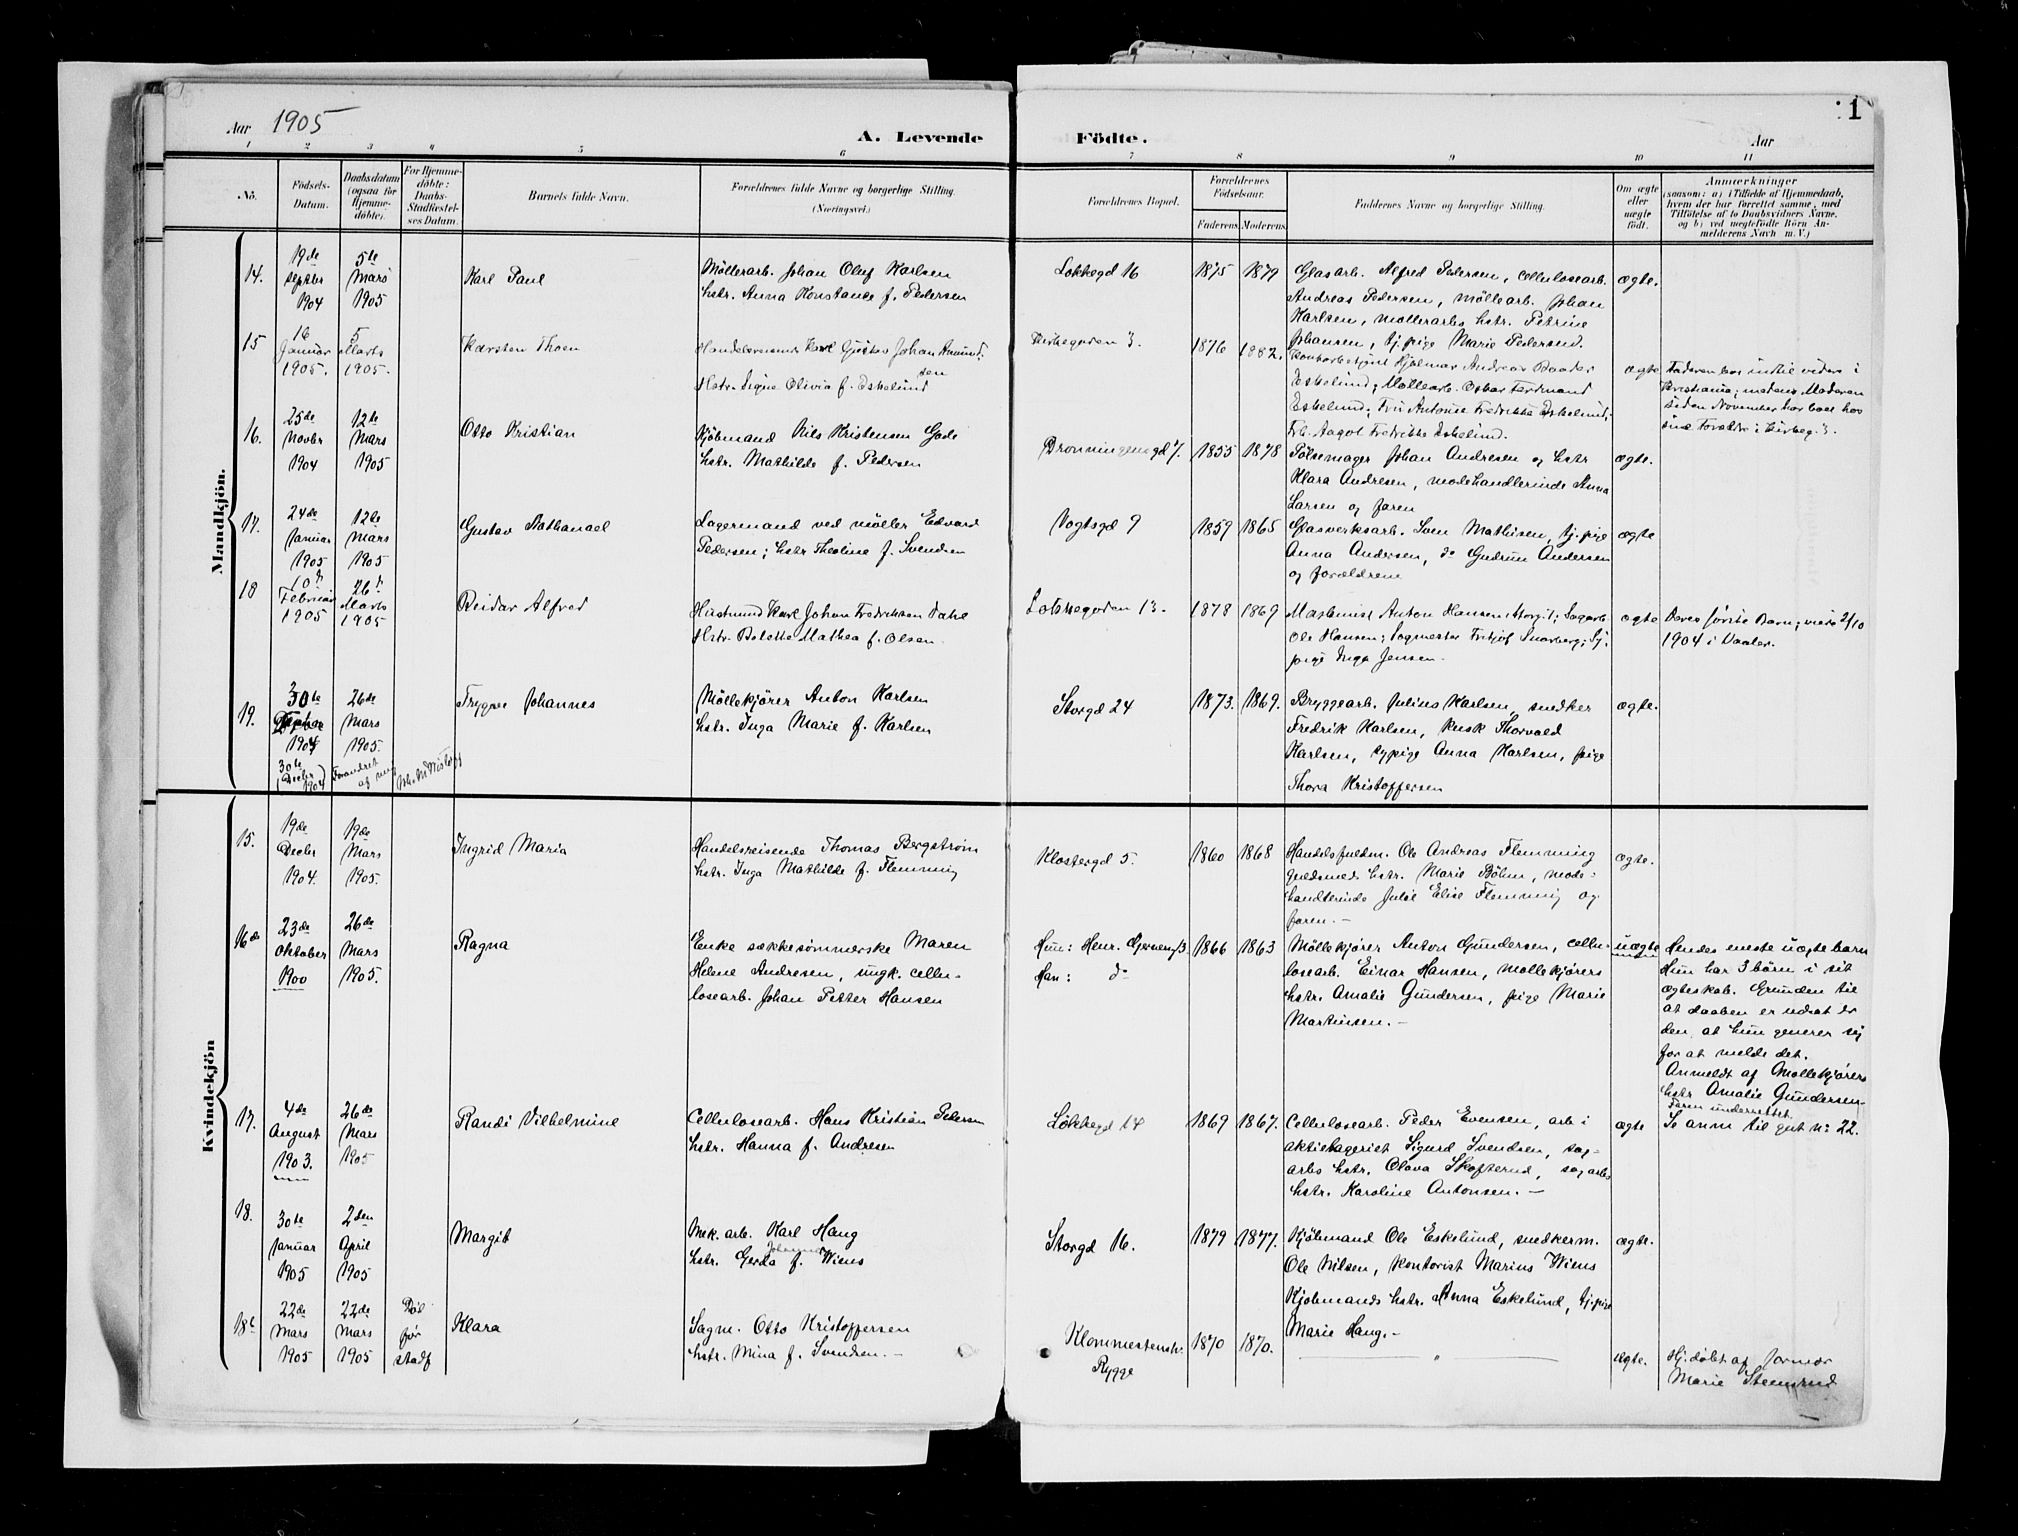 Aar 1905
A. Levende Födte. Aar
1 2 3 4 5 6 7 8 9 10 11
No.
Födsels-Datum.
Daabsdatum (ogsaa for Hjemme-döbte).
For Hjemme-döbte: Daabs-Stadfæstelses Datum.
Barnets fulde Navn.
Forældrenes fulde Navne og borgerlige Stilling.
(Næringsvei.)
Forældrenes Bopæl.
Forældrenes Födselsaar.
Faderens. Moderens.
Faddernes Navne og borgerlige Stilling.
Om ægte eller uægte födt.
Anmærkninger
(saasom: a) i Tilfælde af Hjemmedaab, hvem der har forrettet samme, med Tilföielse af to Daabsvidners Navne, og b) ved uægtefödte Börn Anmelderens Navn m. V.)
Mandkjön.
14.
19de septbr 1904
5te Mars 1905
Karl Paul
Møllerarb. Johan Oluf Karlsen
hstr. Anna Konstance f. Pedersen
Løkkegd 16
1875 1879
Glasarb. Alfred Pedersen, cellulosearb.
Andreas Pedersen, møllearb. Johan
Karlsen, møllerarbs hstr. Petrine
Johansen, tj.pige Marie Pedersen.
ægte.
15
16 Januar 1905.
5 Marts 1905.
Karsten Thoen
Handelsreisende Karl Gustav Johan Amund-
sen
Hstr. Signe Olivia f. Eskelund
Kirkegaden 3.
1876 1882.
Kontorbetjent Hjalmar Andreas Baader
Eskelund; Møllearb. Oskar Ferdinand
Eskelund; Fru Antonie Fredrikke Eskelund;
Frk. Aagot Fredrikke Eskelund.
ægte
Faderen bor indtil videre i
Kristiania; medens Moderen
siden November har boet hos
sine Forældre i Kirkeg. 3.
16.
25de Novbr 1904
12te Mars 1905
Otto Kristian
Kjøbmand Nils Kristensen Gade
hstr. Mathilde f. Pedersen
Dronningensgd 7.
1855 1878
Pølsemager Johan Andresen og hstr
Klara Andresen, modehandlerinde Anna
Larsen og faren
ægte.
17.
24de Januar 1905
12te Mars 1905
Gustav Nathanael
Lagermand ved møller Edvard
Pedersen; hstr Theoline f. Svendsen
Vogtsgd 9
1859 1865
Glasverksarb. Sven Mathisen, tj.pige
Anna Andersen, do Gudrun Andersen
og forældrene
ægte
18
10de Februar 1905
26de Marts 1905
Reidar Alfred
Husmand Karl Johan Fredriksen Dahl
Hstr. Bolette Mathea f. Olsen.
Løkkegaden 13.
1878 1869
Maskinist Anton Hansen, Storgt; Sagarb.
Ole Hansen; Sagmester Fritjof Snarberg; Sy-
pige Inga Jensen.
ægte
Deres første Barn; viede 2/10
1904 i Vaaler.
19.
30te 1904
30te (Decbr 1904)
26de Mars 1905.
Forandret af mig
Trygve Johannes
Møllekjører Anton Karlsen
hstr. Inga Marie f. Karlsen
Storgd 24
1873. 1869.
Bryggearb. Julius Karlsen, snedker
Fredrik Karlsen, kusk Thorvald
Karlsen, sypige Anna Karlsen, pige
Thora Kristoffersen
ægte.
Kvindekjön
15.
19de Decbr 1904.
19de Mars 1905.
Ingrid Maria
Handelsreisende Thomas Bergstrøm
hstr. Inga Mathilde f. Flemming
Klostergd 5.
1860 1868
Handelsfuldm. Ole Andreas Flemming
guldsmeds hstr. Marie Bøhm, mode-
handlerinde Julie Elise Flemming og
faren.—
ægte.
16de
23de Oktober 1900
26de Mars 1905.
Ragna
Enke sækkesømmerske Maren
Helene Andresen, ungk. cellu-
losearb. Johan Petter Hansen
Hun: Henr. Gjernersgd 3
Han: do
1866 1863
Møllekjører Anton Gundersen, cellu-
losearb. Einar Hansen, møllekjørers
hstr. Amalie Gundersen, pige Marie
Martinsen.—
uægte
Hendes eneste uægte barn
Hun har 3 børn i sit
ægteskab. Grunden til
at daaben er udsat er
den, at hun generer sig
for at melde det.
Anmeldt af Møllekjørers
hstr Amalie Gundersen.
Faren underrettet.
17.
4de August 1903.
26de Mars 1905
Randi Vilhelmine
Cellulosearb. Hans Kristian Pedersen
hstr. Hanna f. Andresen
Løkkegd 14
1869 1867.
Cellulosearb. Peder Evensen, arb i
aktietageriet Sigurd Svendsen, sag-
arbs hstr. Olava Skofterud, sagarbs
hstr. Karoline Antonsen.—
ægte
Se anm til gut no 22.
18.
30te Januar 1905
2den April 1905
Margit
Mek. arb. Karl Haug
hstr. Gerda Johanne f. Wiens
Storgd 16.
1879 1877.
Kjøbmand Ole Eskelund, snedkerm.
Ole Nilsen, kontorist Marius Wiens
Kjøbmands hstr. Anna Eskelund, tj.pige
Marie Haug.—
ægte.
18b
22de Mars 1905
22de Mars 1905
Død før stadf
Klara
Sagm. Otto Kristoffersen
hstr. Mina f. Svendsen.—
Rygge
1870 1870.
— " —
ægte.
Hj.døbt af farmor
Marie Stensrud